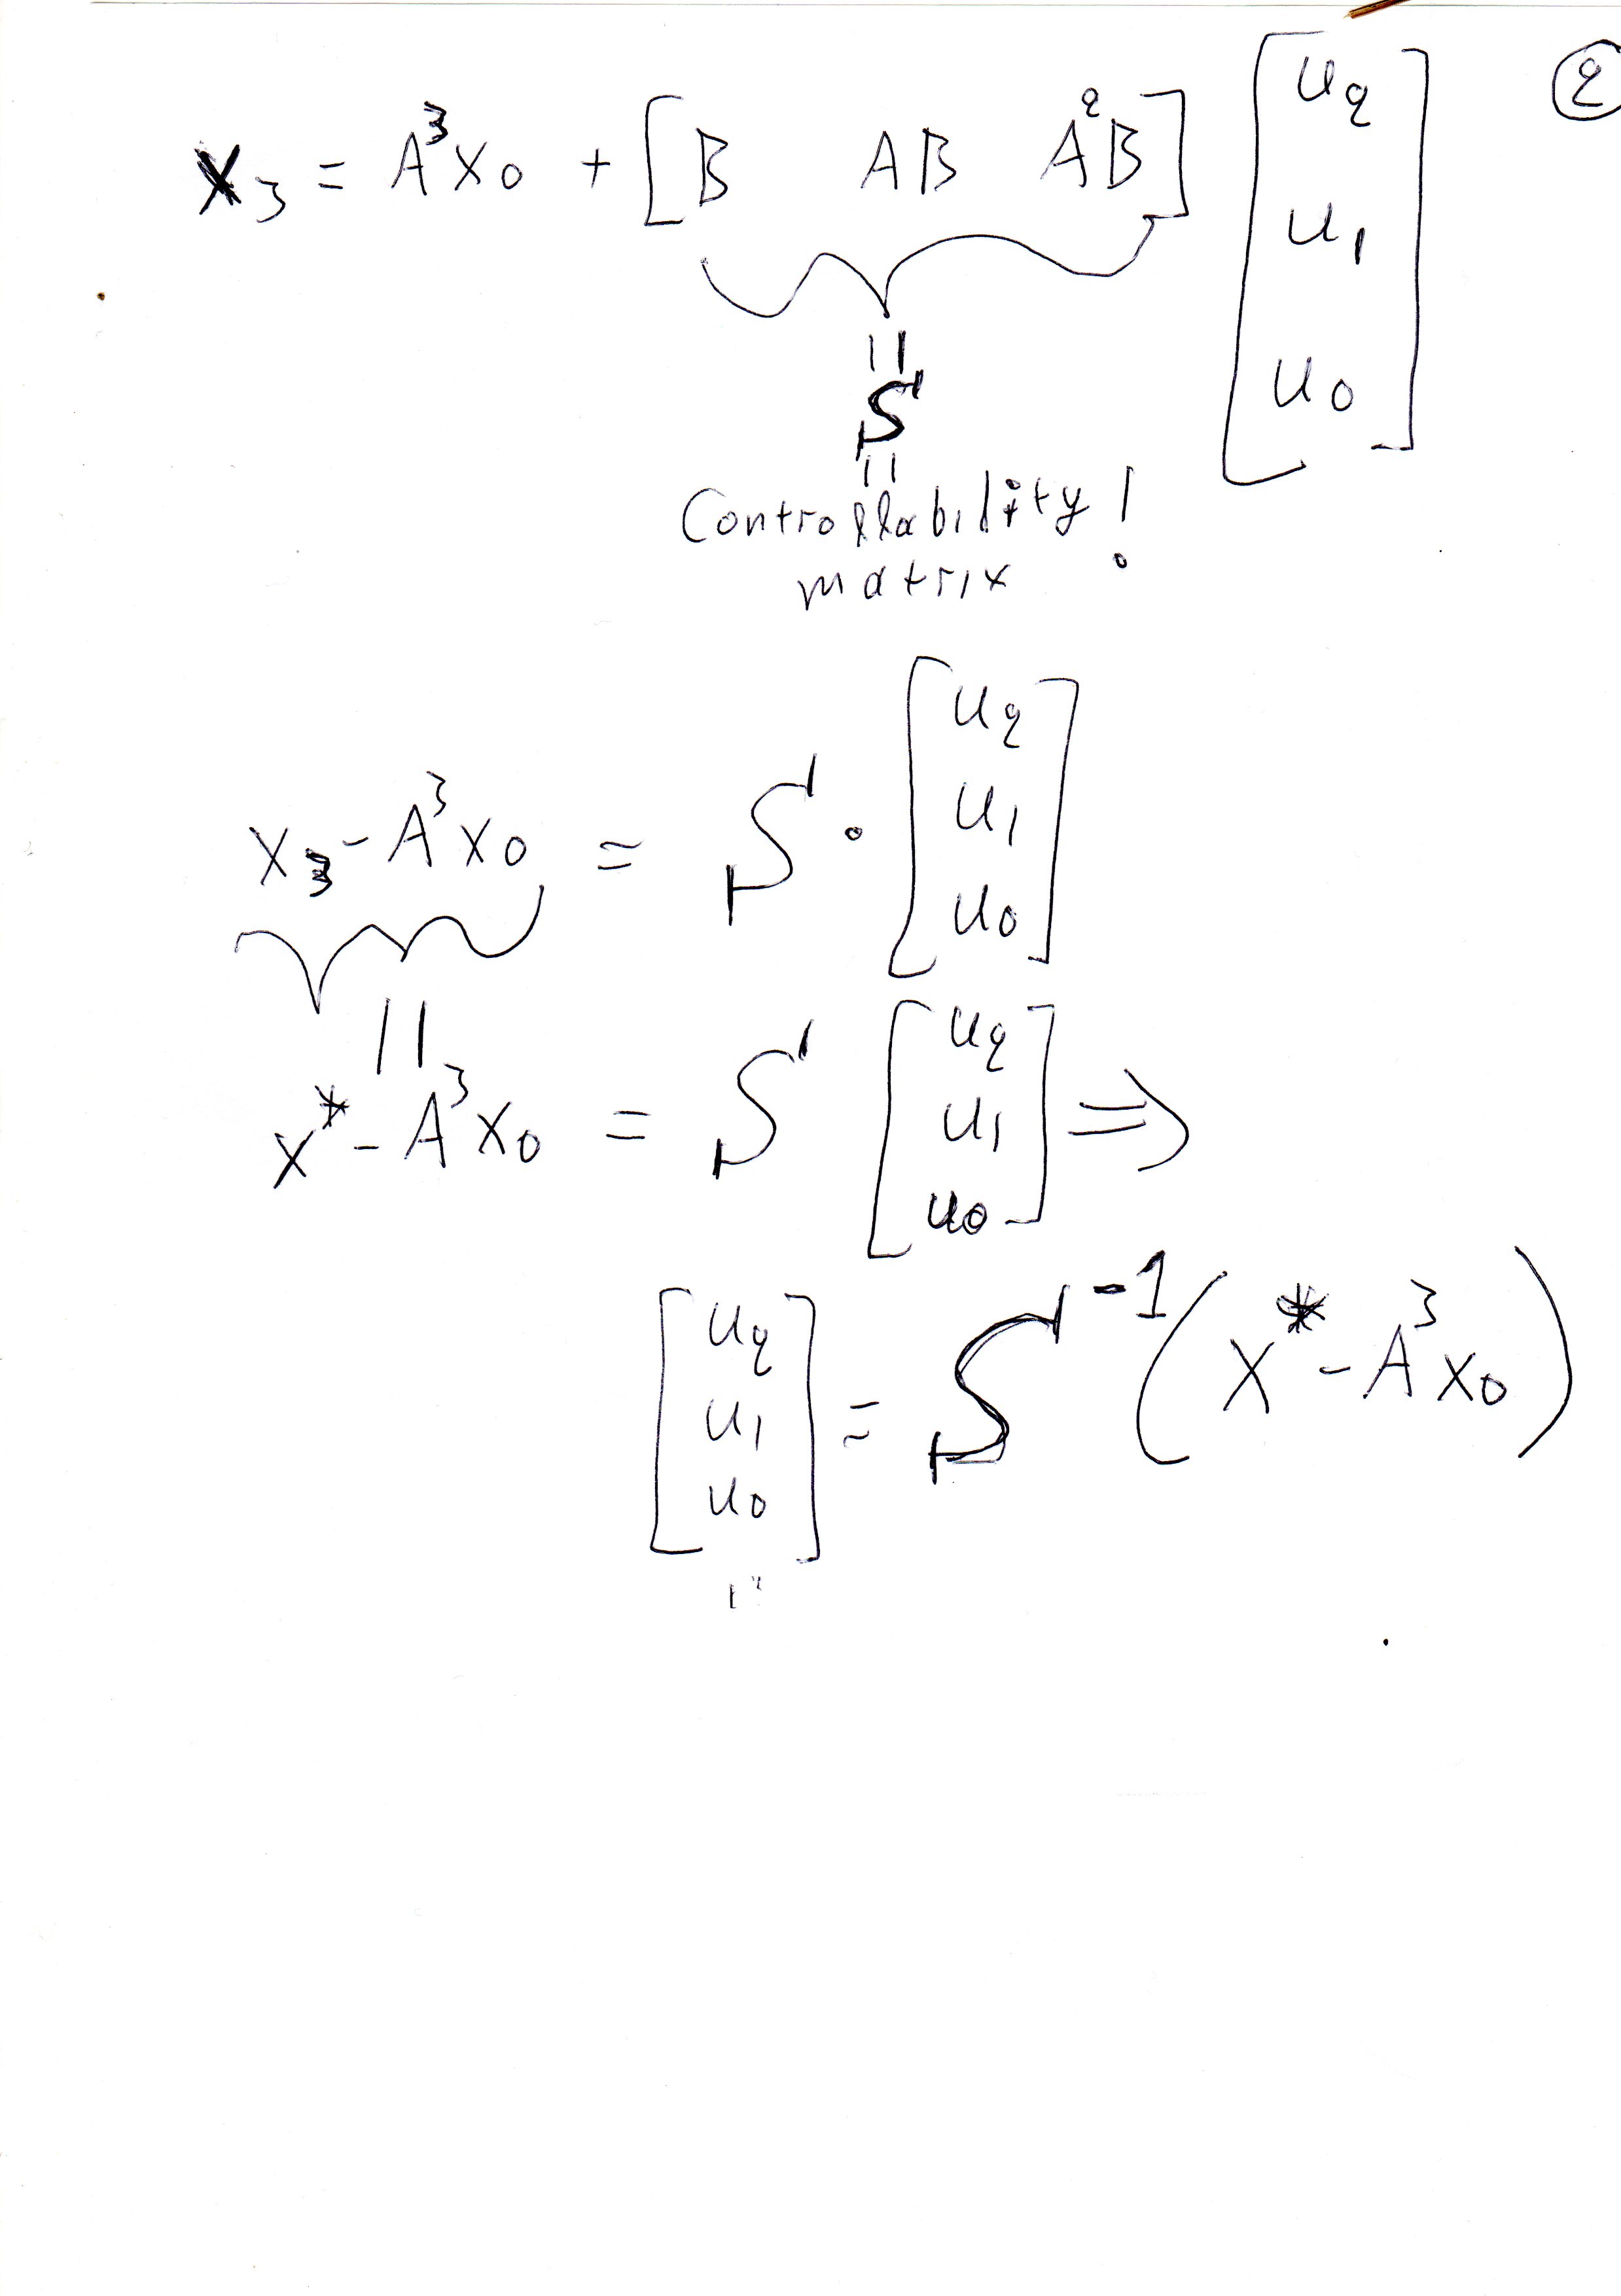 ②
x₃ = A³x₀ + [B AB A²B] [u₂ u₁ u₀]
||
S
||
Controllability !
matrix
x₃ - A³x₀ = S · [u₂ u₁ u₀]
||
x* - A³x₀ = S [u₂ u₁ u₀] ⇒
[u₂ u₁ u₀] = S⁻¹ (x* - A³x₀)